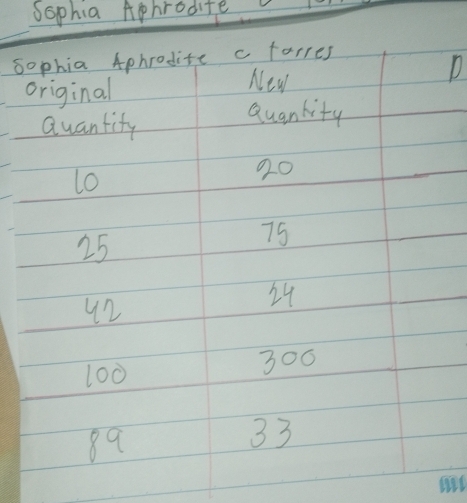 Sophia Aphrodite C
Sophia Aphrodite C Torres
Original New D
Quantity Quantity
10 20
25 75
42 24
100 300
89 33